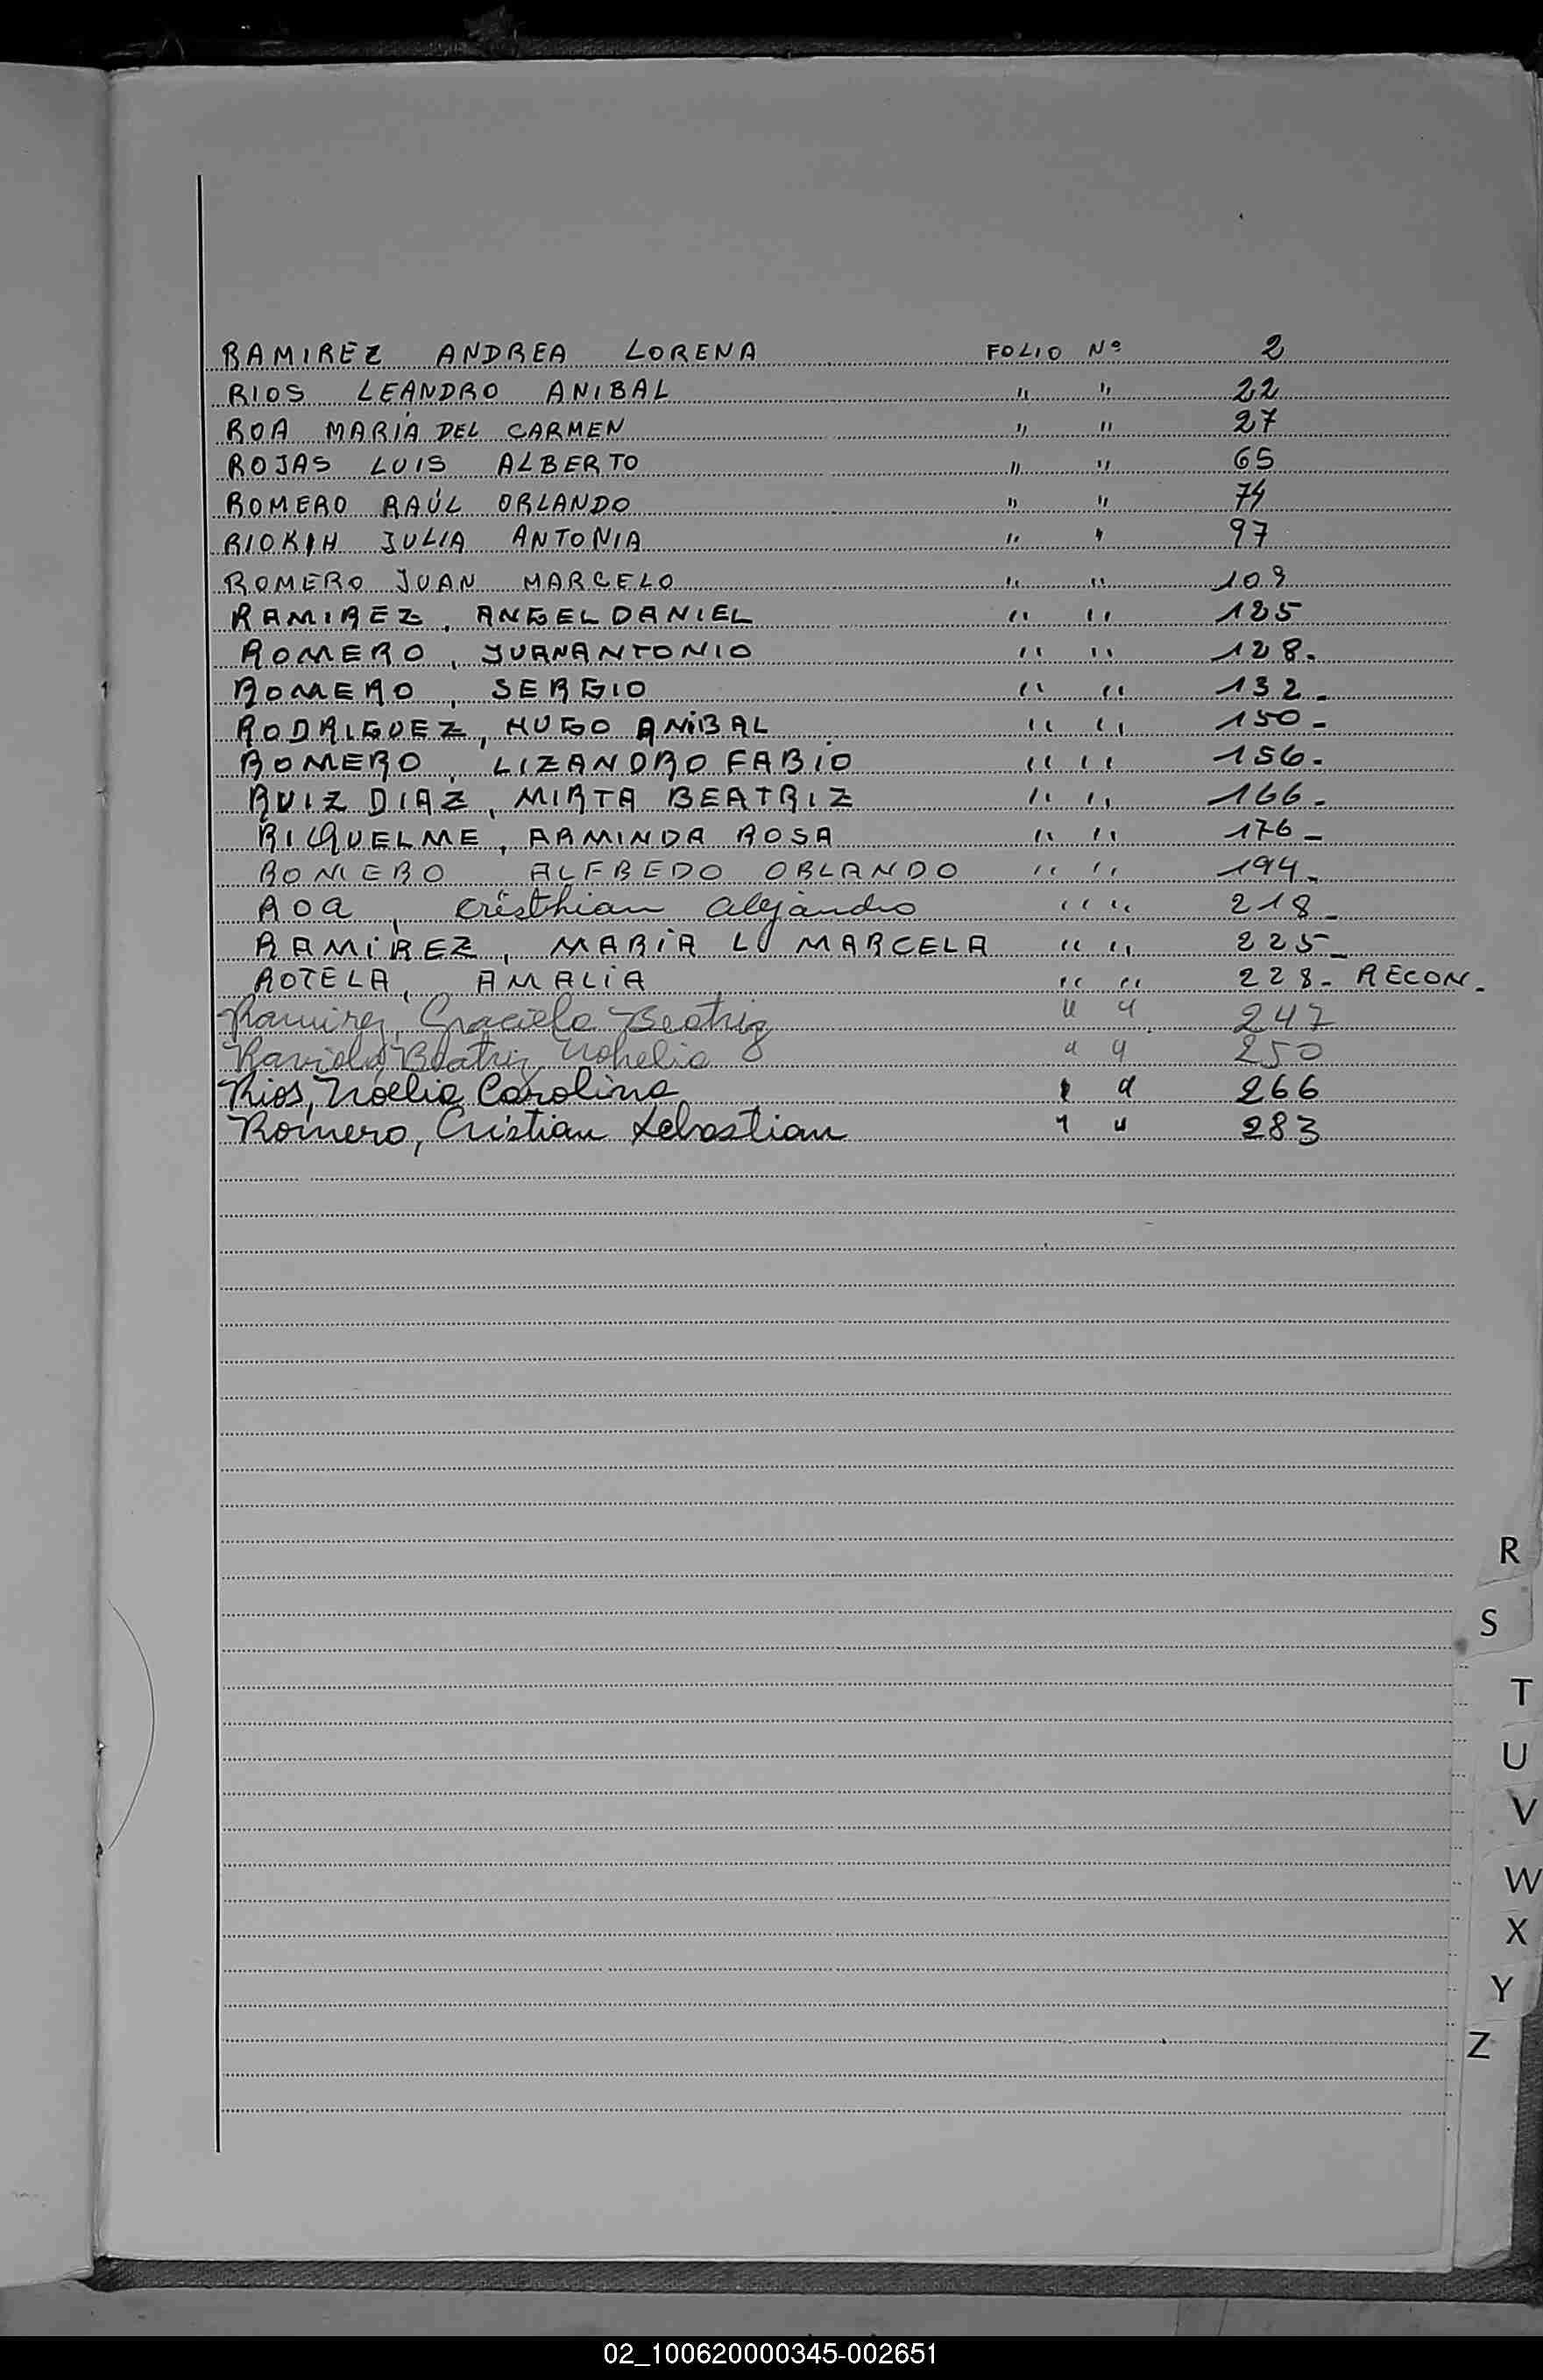 RAMIREZ ANDREA LORENA FOLIO Nº 2
RIOS LEANDRO ANIBAL " " 22
ROA MARIA DEL CARMEN " " 27
ROJAS LUIS ALBERTO " " 65
ROMERO RAÚL ORLANDO " " 74
RIOKIH JULIA ANTONIA " " 97
ROMERO JUAN MARCELO " " 109
RAMIREZ, ANGEL DANIEL " " 125
ROMERO, JUAN ANTONIO " " 128.
ROMERO, SERGIO " " 132-
RODRIGUEZ, HUGO ANIBAL " " 150-
ROMERO, LIZANDRO FABIO " " 156-
RUIZ DIAZ, MIRTA BEATRIZ " " 166-
RIQUELME, ARMINDA ROSA " " 176-
ROMERO ALFREDO ORLANDO " " 194-
ROA, Cristhian Alejandro " " 218-
RAMÍREZ, MARÍA LU MARCELA " " 225-
ROTELA, AMALIA " " 228- RECON.
Ramirez, Graciela Beatriz " " 247
Beatriz Nohelia " " 250
Rios, Noelia Carolina " " 266
Romero, Cristian Sebastian " " 283
R
S
T
U
V
W
X
Y
Z
02_100620000345-002651